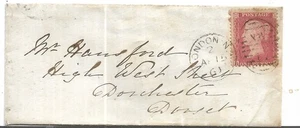 Mr Hansford
High West Street
Dorchester
Dorset.
LONDON
61